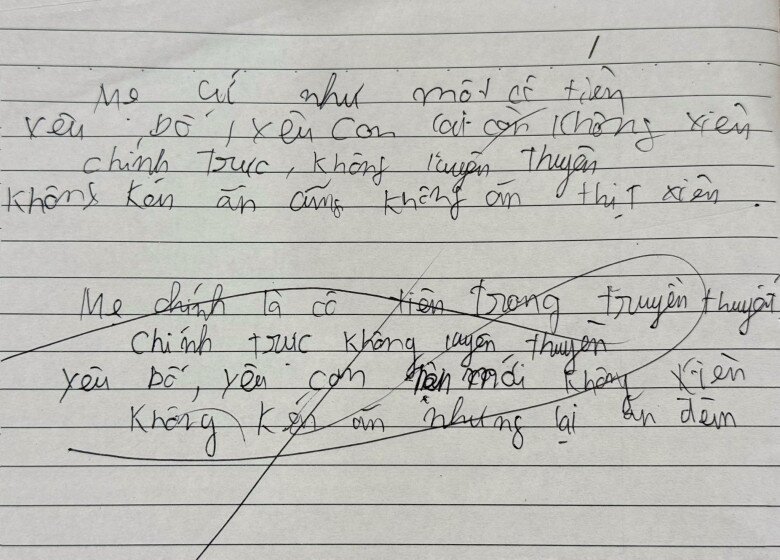 Mẹ cứ như một cô tiên
yêu bố, yêu con lại còn không xiên
chính trực, không luyên thuyên
không kén ăn cũng không ăn thịt xiên.
Mẹ chính là cô tiên trong truyền thuyết
chính trực không luyên thuyên
yêu bố, yêu con mới không xiên
không kén ăn nhưng lại ăn đêm